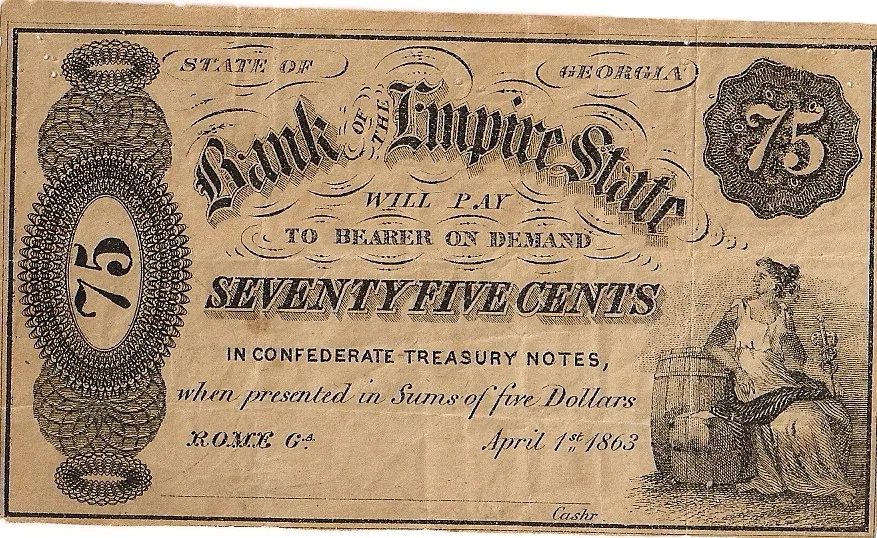 75
STATE OF GEORGIA
75
Bank OF THE Empire State
WILL PAY
TO BEARER ON DEMAND
SEVENTY FIVE CENTS
IN CONFEDERATE TREASURY NOTES,
when presented in Sums of five Dollars
ROME Ga. April 1st 1863
Cashr.